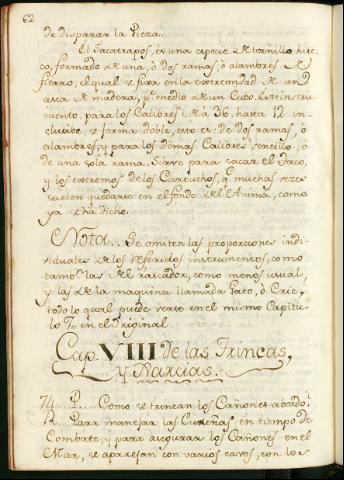 62
de disparar la Pieza.
El Sacatrapos, es una especie de tornillo hue-
co, formado de una, ò dos ramas, ò alambres de
fierro, el qual se fixa en la extremidad de un
asta de madera, pr. medio de un Cubo. Este instru-
mento, para los Calibres de à 36, hasta 12 in-
clusibe, se forma doble, esto es: de dos ramas, ò
alambres, y para los demas Calibres, sencillo, ò
de una sola rama. Sirve para sacar el Taco,
y los extremos de los Cartuchos, q. muchas vezes
suelen quedarse en el fondo del Anima, como
ya se ha dicho.
Nota... Se omiten las proporciones indi-
viduales de los referidos instrumentos, como
tambn. las del rascador, como menos usual,
y las de la maquina llamada Gato, ò Cric,
todo lo qual puede verse en el mismo Capitu-
lo 7,, en el Original.
Cap. VIII de las Trincas,
y Narcias.
74... P.... Como se trincan los Cañones abordo?
R... Para manejar las Cureñas en tiempo de
Combate, y para asegurar los Cañones en el
Mar, se aparejan con varios cavos, con los